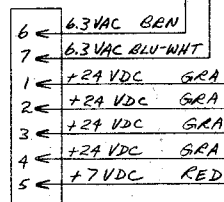 6 6.3 VAC BRN
7 6.3 VAC BLU-WHT
1 +24 VDC GRA
2 +24 VDC GRA
3 +24 VDC GRA
4 +24 VDC GRA
5 +7 VDC RED